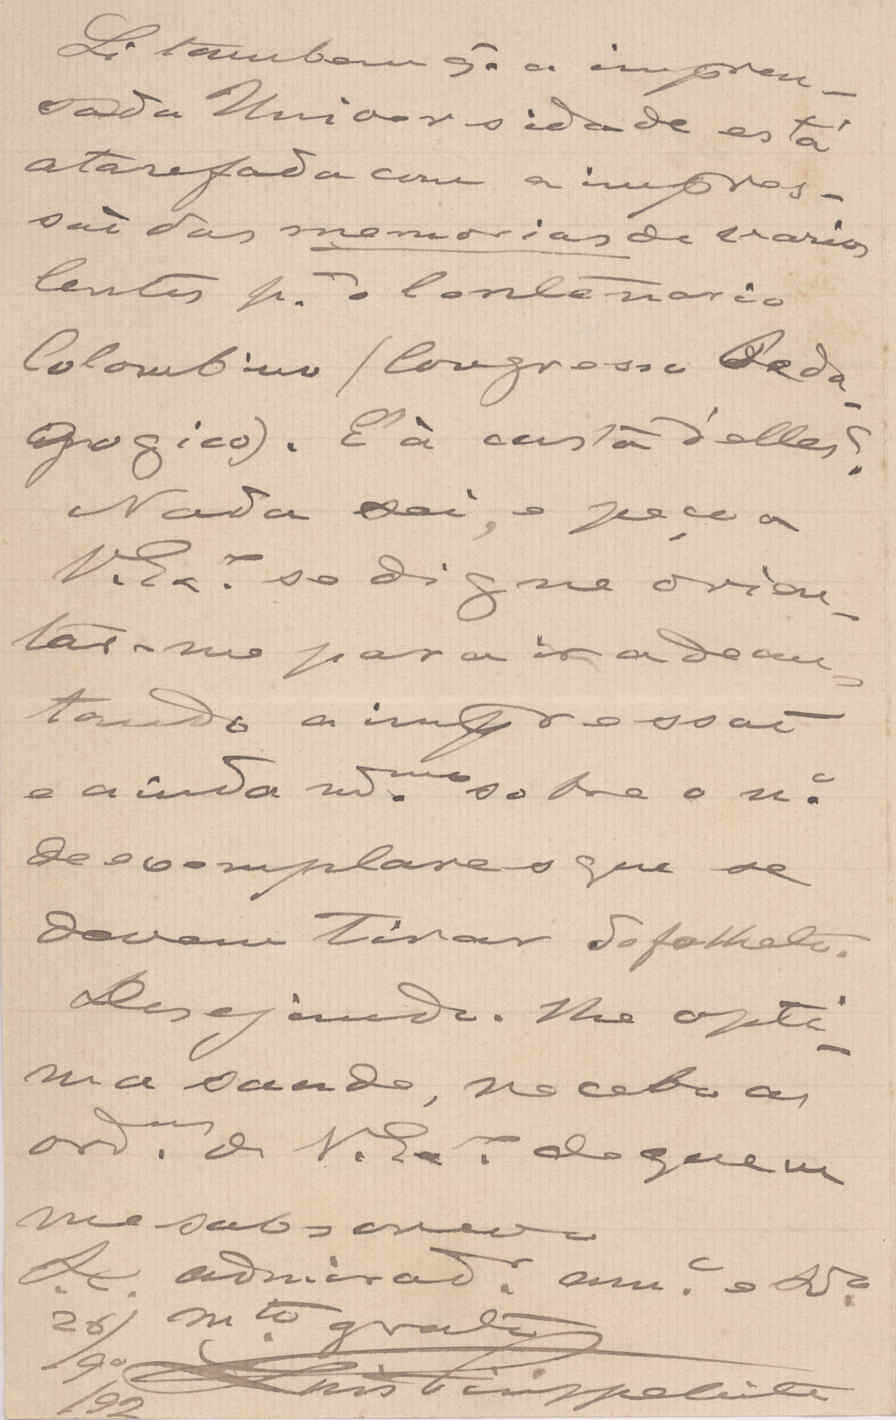 Li tambem q. a impren-
sa da Universidade está
atarefada com a impres-
são das memorias de varios
lentes p.ª o Centenario
Colombino (Congresso Peda-
gogico). E' à custa d'elles?
Nada sei, e peço a
V. Ex.ª se digne orien-
tar-me para ir adean-
tando a impressão
e ainda m.mo sobre o n.º
de exemplares que se
devem tirar do folheto.
Desejando-lhe opti-
ma saude, recebo as
ord.ns de V. Ex.ª de quem
me subscrevo
admirad.r am.º e
26/ m.to grato
/9º
/92 Luis Filippe Leite